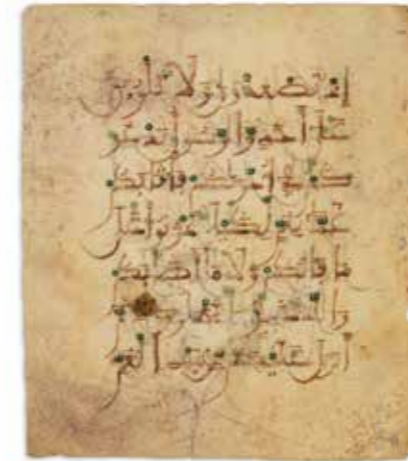 إذ تصعدون ولا تلون
على أحد والرسول يدعو
كم في أخركم فأثبكم
غما بغم لكيلا تحزنوا على
ما فاتكم ولا ما أصبكم
والله خبير بما تعملون ثم
أنزل عليكم من بعد الغم